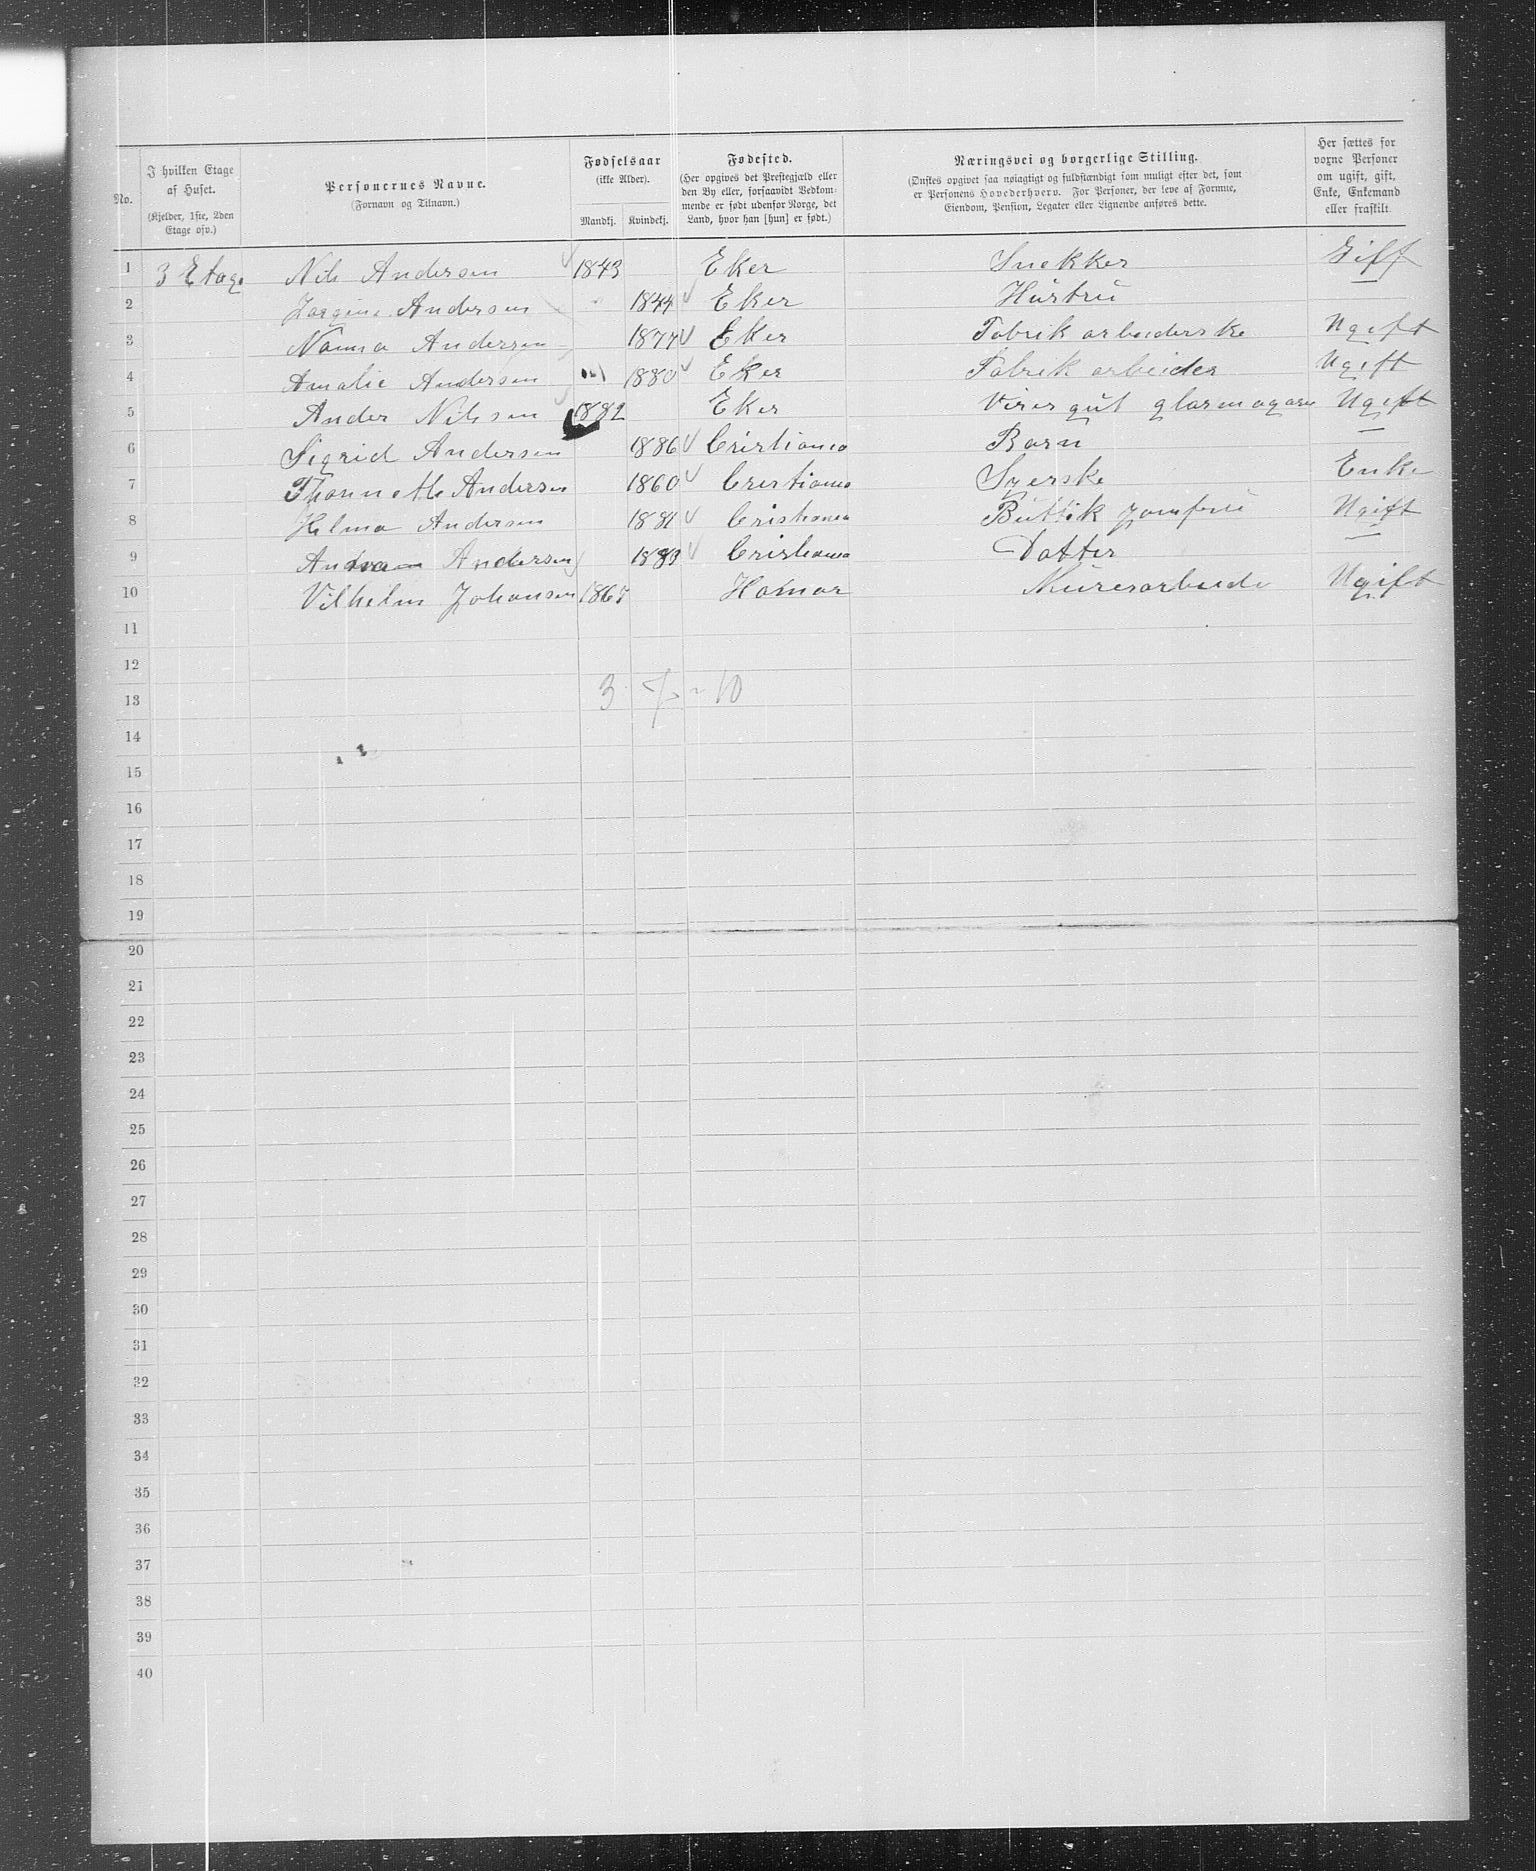 No.
I hvilken Etage af Huset. (Kjelder, 1ste, 2den Etage osv.)
Personernes Navne. (Fornavn og Tilnavn.)
Fødselsaar (ikke Alder). Mandkj. Kvindekj.
Fødested. (Her opgives det Præstegjæld eller den By eller, forsaavidt Vedkommende er født udenfor Norge, det Land, hvor han [hun] er født.)
Næringsvei og borgerlige Stilling. (Ønskes opgivet saa nøiagtigt og fuldstændigt som muligt efter det, som er Personens Hovederhverv. For Personer, der leve af Formue, Eiendom, Pension, Legater eller Lignende anføres dette.
Her sættes for voxne Personer om ugift, gift, Enke, Enkemand eller fraskilt.
1 3 Etage Nils Andersen 1843 Eker Snekker Gift
2 Jorgine Andersen 1844 Eker Hustru —
3 Nanna Andersen 1877 Eker Fabrik arbeiderske Ugift
4 Amalie Andersen 1880 Eker Fabrik arbeider Ugift
5 Ander Nilssen 1882 Eker Viser gut glasmagasin Ugift
6 Sigrid Andersen 1886 Cristiania Barn —
7 Andersen 1860 Cristiania Syerske Enke
8 Helma Andersen 1881 Cristiania Buttik jomfru Ugift
9 Andersen 1883 Cristiania Datter —
10 Vilhelm Johansen 1867 Hamar Muresarbeide Ugift
11
12
13 3 7 = 10
14
15
16
17
18
19
20
21
22
23
24
25
26
27
28
29
30
31
32
33
34
35
36
37
38
39
40